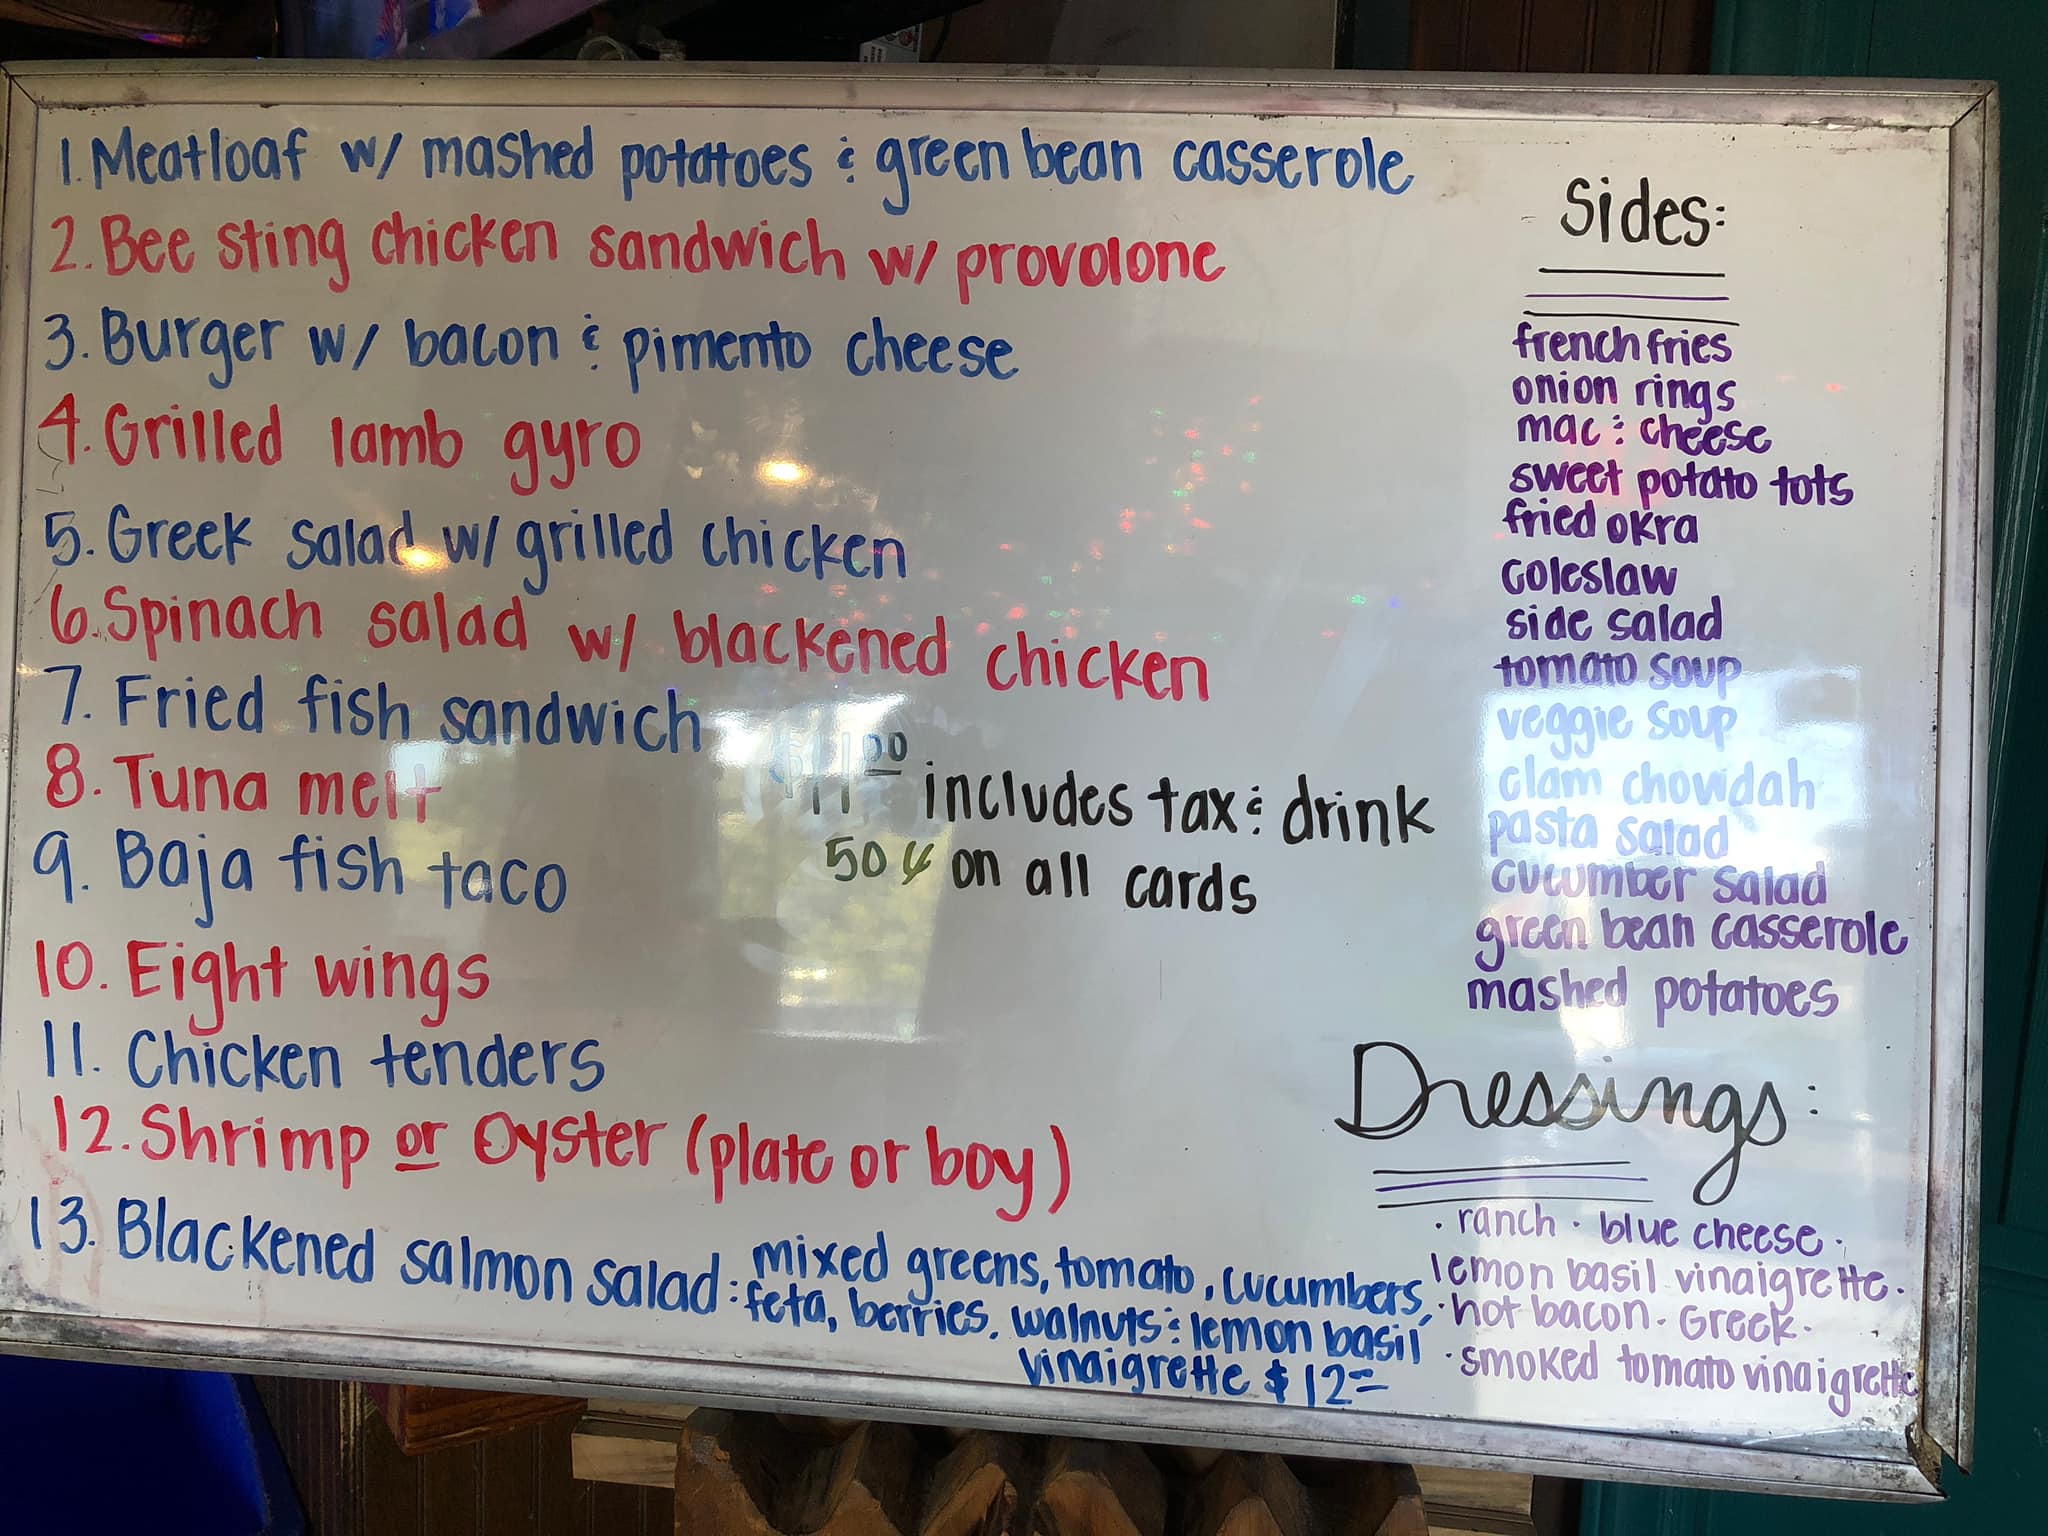 1. Meatloaf w/ mashed potatoes & green bean casserole
2. Bee sting chicken sandwich w/ provolone
3. Burger w/ bacon & pimento cheese
4. Grilled lamb gyro
5. Greek salad w/ grilled chicken
6. Spinach salad w/ blackened chicken
7. Fried fish sandwich
8. Tuna melt
9. Baja fish taco
10. Eight wings
11. Chicken tenders
12. Shrimp or Oyster (plate or boy)
13. Blackened salmon salad: mixed greens, tomato, cucumbers,
feta, berries, walnuts & lemon basil
vinaigrette $12=
$11.00 includes tax & drink
50¢ on all cards
Sides:
french fries
onion rings
mac & cheese
sweet potato tots
fried okra
coleslaw
side salad
tomato soup
veggie soup
clam chowdah
pasta salad
cucumber salad
green bean casserole
mashed potatoes
Dressings:
· ranch · blue cheese ·
lemon basil vinaigrette ·
· hot bacon · Greek ·
· smoked tomato vinaigrette